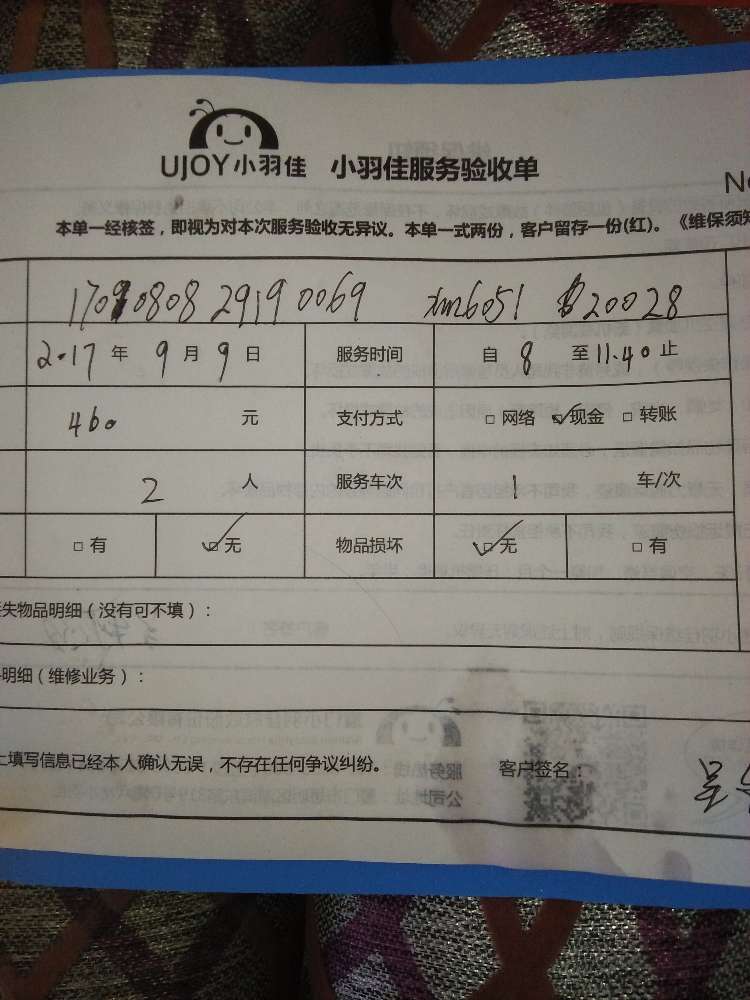 UJOY小羽佳 小羽佳服务验收单
No
本单一经核签，即视为对本次服务验收无异议。本单一式两份，客户留存一份(红)。《维保须知
1709080829190069 xm6051 B20028
2.17年9月9日 服务时间 自8至11.40止
460元 支付方式 □网络 ☑现金 □转账
2人 服务车次 1车/次
□有 ☑无 物品损坏 ☑无 □有
失物品明细（没有可不填）：
明细（维修业务）：
上填写信息已经本人确认无误，不存在任何争议纠纷。 客户签名：